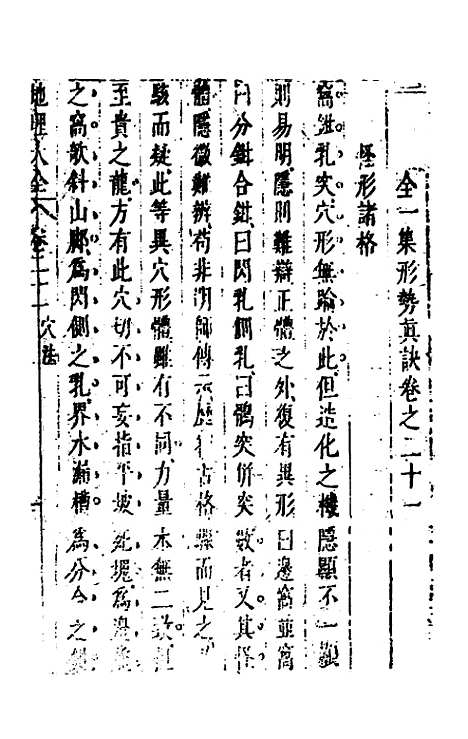 全一集形勢真訣卷之二十一
怪形諸格
窩鉗乳突穴形無踰於此但造化之機隱顯不一顯
則易明隱則難辯正體之外復有異形曰邊窩並窩
曰分鉗合鉗曰閃乳側乳曰鶻突併突數者又其怪
體隱微難辨苟非明師傳示歷指古格驟而見之
駭而疑此等異穴形體雖有不同力量本無二致
至貴之龍方有此穴切不可妄指平坡死塊為邊
之窩欹斜山腳為閃側之乳界水漏槽為分合之
地理大全 卷二十一 穴法